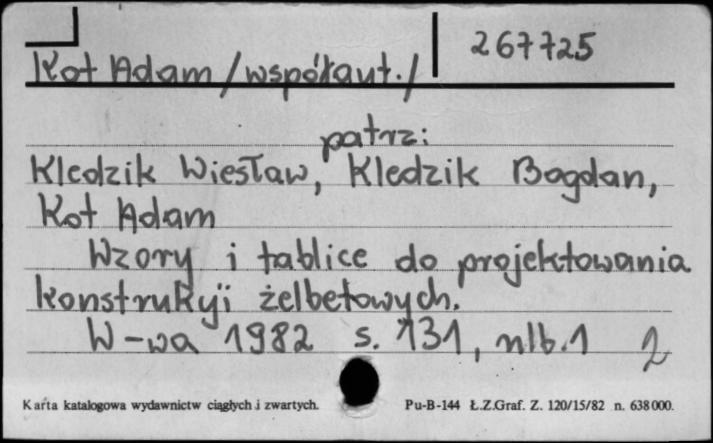 267725
Kot Adam /współaut./
patrz:
Kledzik Wiesław, Kledzik Bogdan,
Kot Adam
Wzory i tablice do projektowania
konstrukyji żelbetowych.
W-wa 1982 s. 131, nlb.1 2
Karta katalogowa wydawnictw ciągłych i zwartych. Pu-B-144 Ł.Z.Graf. Z. 120/15/82 n. 638000.